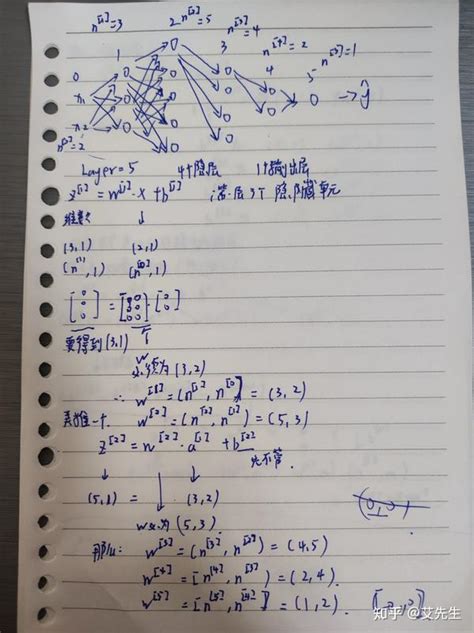 n^[1]=3 2 n^[2]=5 3 n^[3]=4 n^[4]=2 n^[5]=1
0 1 4 5
x1
x2
n^[0]=2
→ŷ
Layer=5 4个隐层 1个输出层
z^[1]=w^[1]·x+b^[1] 第一层3个隐藏单元
维数 ↓
(3,1) (2,1)
(n^[1],1) (n^[0],1)
要得到(3,1) w
必须为(3,2)
∴ w^[1]=(n^[1],n^[0])=(3,2)
再推一个 w^[2]=(n^[2],n^[1])=(5,3)
z^[2]=w^[2]·a^[1]+b^[2]
先不管.
(5,1) = (3,2)
w必为(5,3)
那么: w^[3]=(n^[3],n^[2])=(4,5)
w^[4]=[n^[4],n^[3]]=(2,4).
w^[5]=[n^[5],n^[4]]=(1,2).
知乎 @艾先生